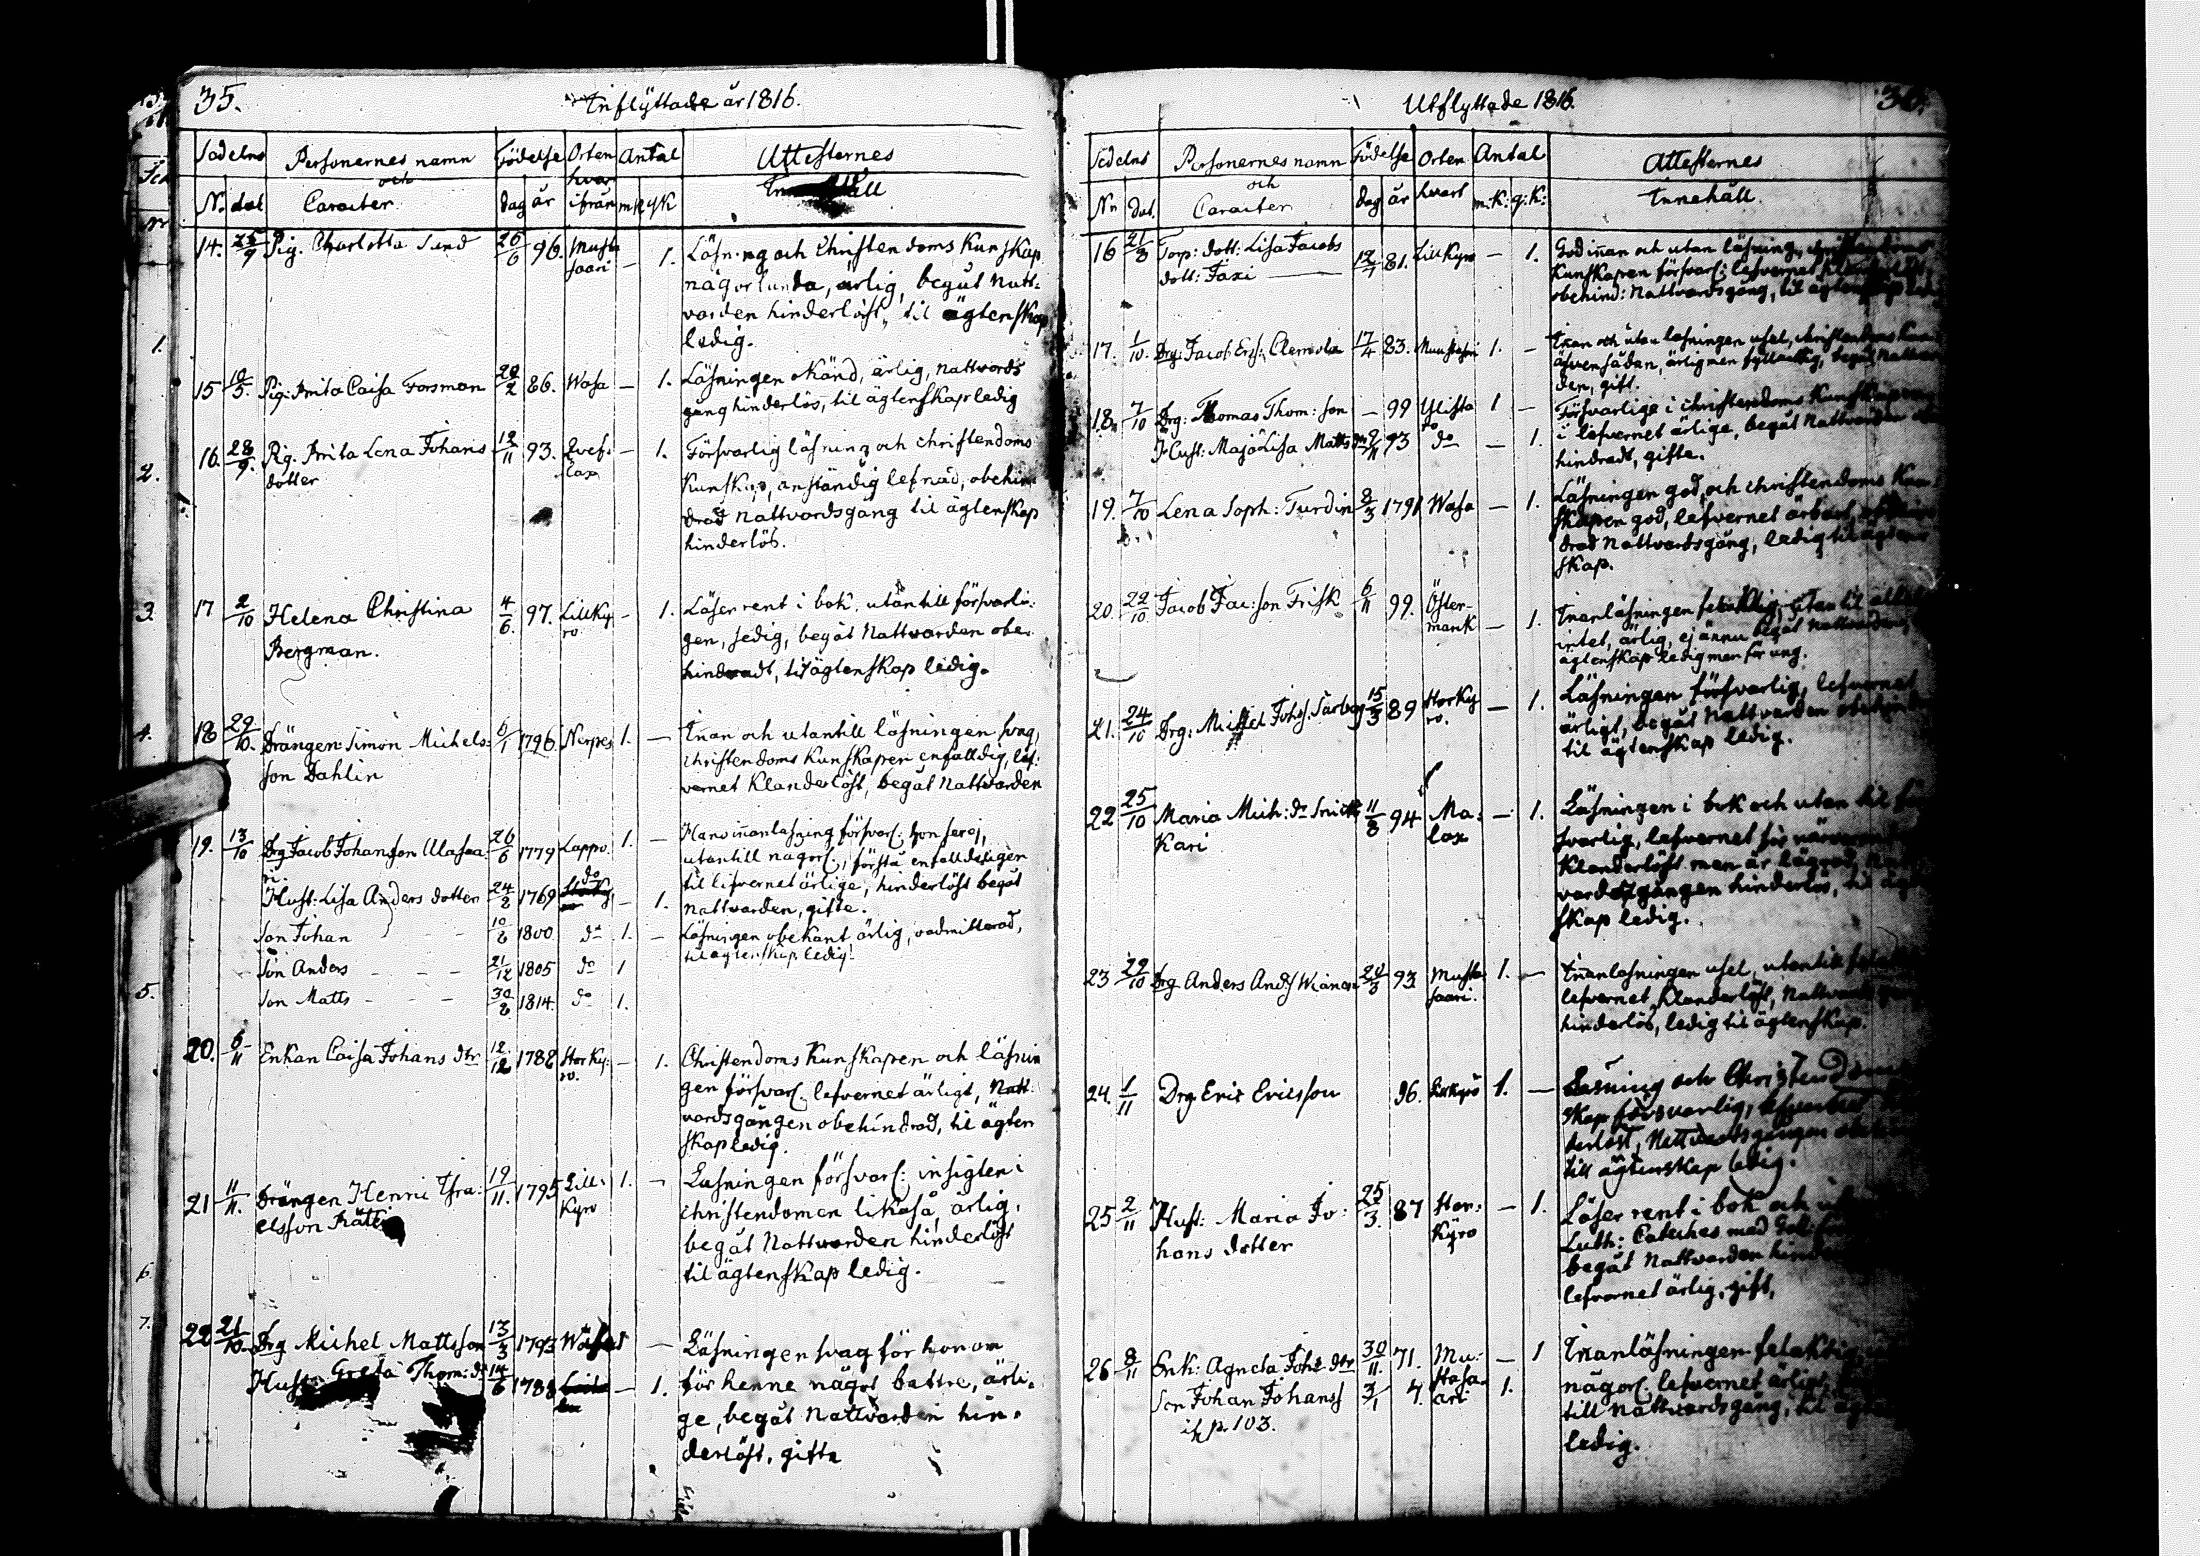 35.
Inflyttade år 1816.
Sedelns Personernes namn och Caracter Födelse Orten hvar ifrån Antal Attesternes
Nr. dat. dag år m.k g.k Innehåll
14. 25/9 Pig. Charlotta Sund 26/6 96. Musta saari — 1. Läsning och Christendoms Kunskap
någorlunda, ärlig, begåt Natt-
varden hinderlöst, til ägtenskap
ledig.
15 10/5. Pig: Anita Caisa Forsman 2/2 86. Wasa — 1. Läsningen okänd, ärlig, nattvards
gång hinderlös, til ägtenskap ledig
16. 28/9. Pig. Anita Lena Johans 12/11 93. Qvef- — 1. Försvarlig läsning och christendoms
dotter lax Kunskap, anständig lefnad, obehin-
drad Nattvardsgång til ägtenskap
hinderlös.
17 2/10 Helena Christina 4/6. 97. Lillky — 1. Läser rent i bok, utantill försvarli-
Bergman. ro gen, sedig, begåt Nattvarden obe-
hindradt, til ägtenskap ledig.
18 29/10. Drängen Simon Michels- 6/1 1796. Nerpes 1. — Innan och utantill läsningen svag,
son Dahlin christendoms Kunskapen enfalldig, lef-
vernet Klanderlöst, begåt Nattvarden
19. 13/10 Drg Jacob Johansson Alasaa- 26/6 1779 Lappo. 1. — Hans innanläsning försvarl:
ri. utantill någorl.,
Hust: Lisa Anders dotter 24/2 1769 do — 1. til lefvernet ärlige, hinderlöst begåt
nattvarden, gifte.
Son Johan 10/8 1800 do 1. — Läsningen obekant, ärlig,
til ägtenskap ledig.
Son Anders 21/12 1805 do 1
Son Matts 30/8 1814. do 1.
20. 6/11 Enkan Caisa Johans dtr 12/12 1782 Stor Ky- — 1. Christendoms Kunskapen och läsnin
ro. gen försvarl. lefvernet ärligt, Natt-
vardsgången obehindrad, til ägten
skap ledig.
21 11/11. Drängen Henric Isra- 19/11. 1795 Lill- 1. — Läsningen försvarl: insigten i
elsson Kyro christendomen likaså, ärlig,
begåt Nattvarden hinderlöst
til ägtenskap ledig.
22 21/10 Drg Michel Mattsson 13/3 1793 Wasa 1 — Läsningen svag för honom
Hust. Greta Thom: dr 14/6 1788 — 1. för henne något bättre, ärli-
ge, begåt Nattvarden hin-
derlöst, gifta
Utflyttade 1816.
36.
Sedelns Personernes namn och Caracter Födelse Orten hvart Antal Attesternes
Nr. dat. dag år m:k: q:k: Innehåll.
16 21/8 Torp: dott: Lisa Jacobs 12/7 81. Lillkyro — 1. God innan och utan läsning, christendoms
dott: Faxi Kunskapen försvarl: lefvernet
obehind: Nattvardsgång, til ägtenskap
17. 1/10. Drg: Jacob Ers: Clemola 17/4 83. Mustasari 1. — Innan och utan läsningen usel, christendoms
äfven sådan, ärlig men begåt Nattvar
den, gift.
18. 7/10 Drg: Thomas Thom: son — 99 Ylista 1 — Försvarlige i christendoms Kunskapen
Hust: Maja Lisa Matts dr 2/11 93 do — 1. i lefvernet ärlige, begåt Nattvarden
hindradt, gifte.
19. 7/10 Lena Soph: Turdin 8/3 1791 Wasa — 1. Läsningen god, och christendoms Kun-
skapen god, lefvernet ärbart,
drad Nattvardsgång, ledig til ägten
skap.
20. 22/10 Jacob Jac: son Frisk 6/11 99. Öster- Innanläsningen felaktig, utan til
mark — 1. intet, ärlig, ej ännu begåt Nattvarden,
ägtenskap ledig men för ung.
21. 24/10 Drg: Michel Johs: 15/3 89 Storky — 1. Läsningen försvarlig, lefvernet
ro. ärligt, begåt Nattvarden
til ägtenskap ledig.
22 25/10 Maria Mich: dr 11/8 94 Ma- — 1. Läsningen i bok och utan til för
Kari lax svarlig, lefvernet för närvarande
Klanderlöst men är
vardsgången hinderlös, til ägten
skap ledig.
23 22/10 Drg Anders Ands 20/3 93 Musta 1. — Innanläsningen usel, utantill
saari. lefvernet Klanderlöst, Nattvards
hinderlös, ledig til ägtenskap.
24. 1/11 Drg. Eric Ericsson 96. Lillkyrö 1. — Läsning och Christendoms
skap försvarlig,
derlöst, Nattvardsgången
till ägtenskap ledig.
25 2/11 Hust: Maria Jo- 25/3. 87 Stor- — 1. Läser rent i bok och
hans dotter Kyro Luth: Catches med
begåt Nattvarden hinder
lefvernet ärlig, gift,
26 8/11 Enk: Agneta Johs dtr 30/11. 71. Mu- — 1 Innanläsningen felaktig,
Son Johan Johanss 3/1 7. stasa- 1. någorl. lefvernet ärligt,
p. 103. ari till nattvardsgång, til ägten
ledig.